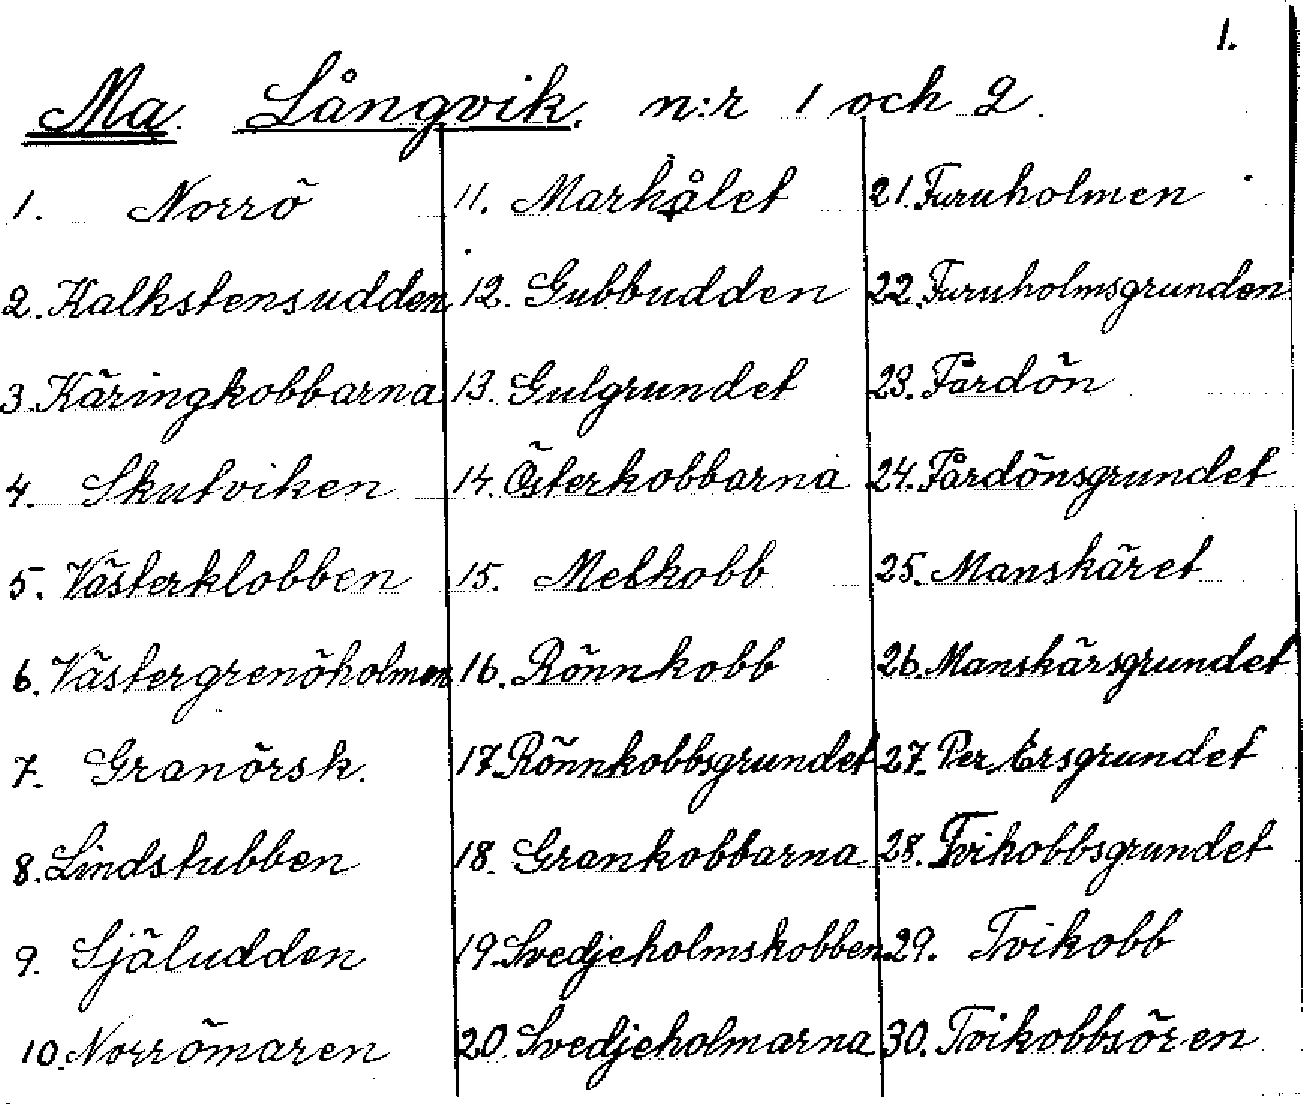 1.
Ma. Långvik. n:r 1 och 2.
1. Norrö
2. Kalkstensudden
3. Käringkobbarna
4. Skutviken
5. Västerklobben
6. Västergrenöholmen
7. Granörsk.
8. Lindstubben
9. Själudden
10. Norrömaren
11. Markålet
12. Gubbudden
13. Gulgrundet
14. Österkobbarna
15. Melkobb
16. Rönnkobb
17. Rönnkobbsgrundet
18. Grankobbarna
19. Svedjeholmskobben
20. Svedjeholmarna
21. Furuholmen
22. Furuholmsgrunden
23. Fårdön
24. Fårdönsgrundet
25. Manskäret
26. Manskärsgrundet
27. Per Ersgrundet
28. Tvikobbsgrundet
29. Tvikobb
30. Tvikobbsören